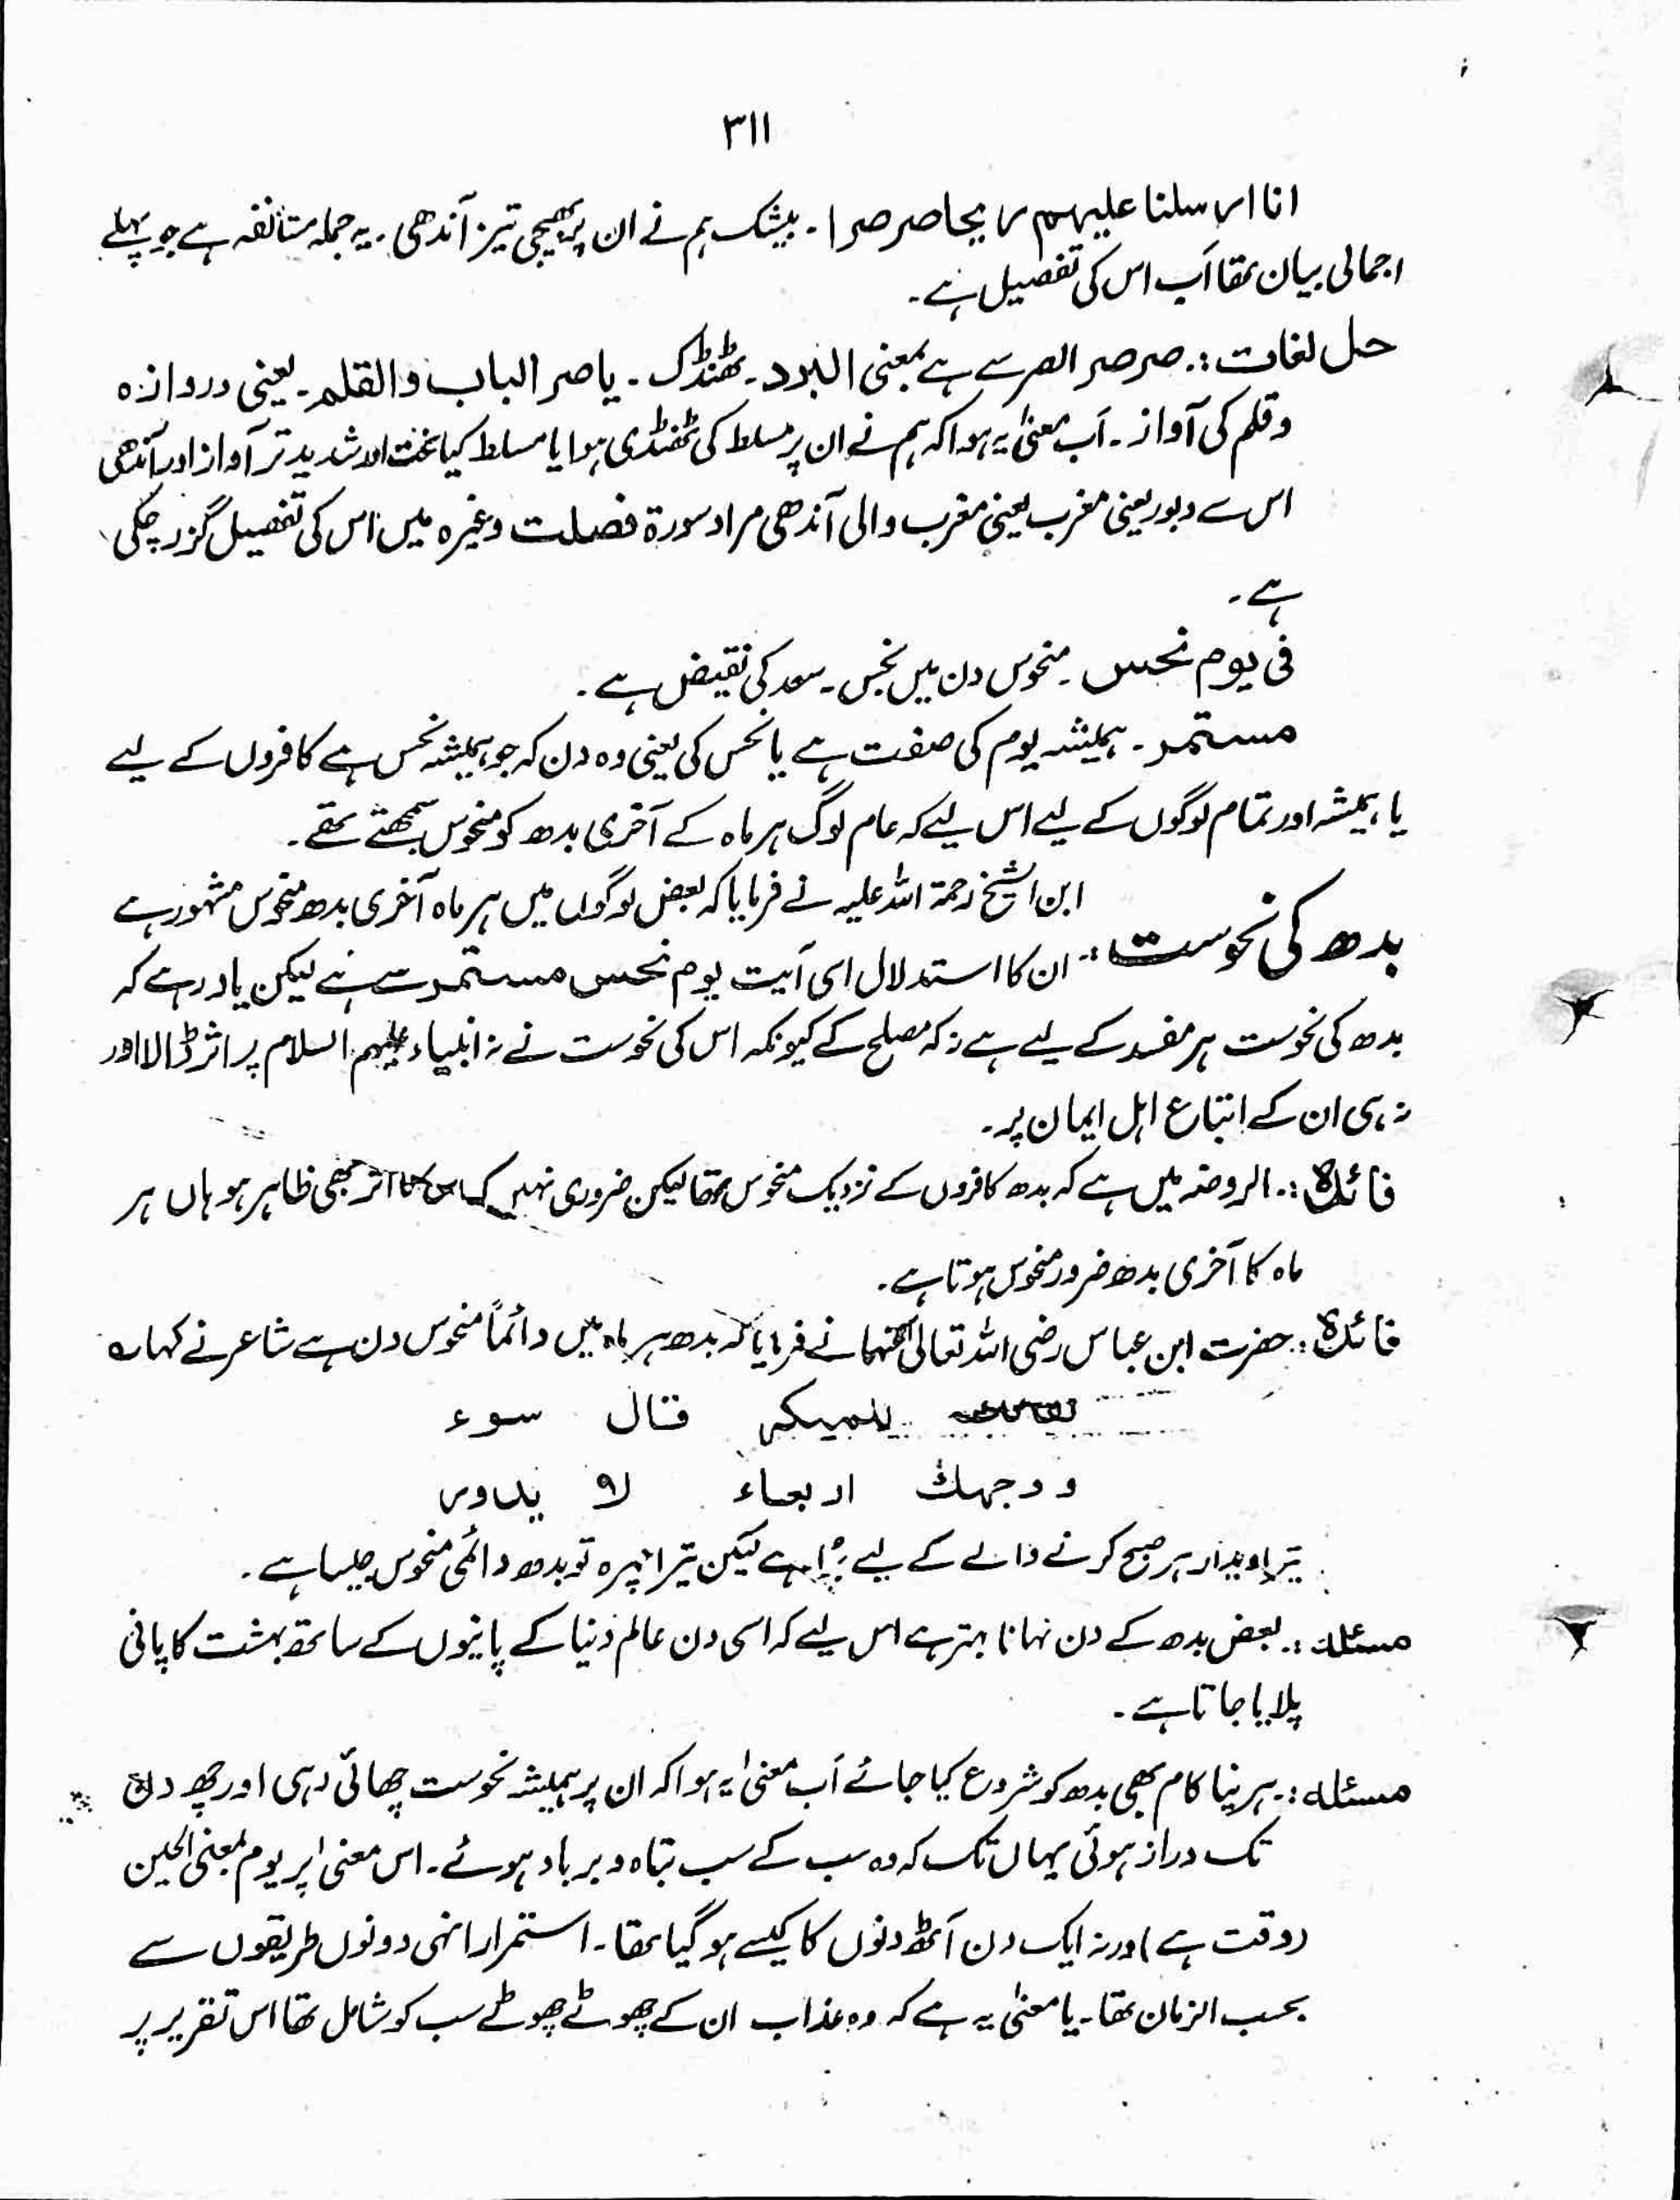 ۳۱۱
انا ارسلنا علیہم ریحا صرصرا ۔ بیشک ہم نے ان پر بھیجی تیز آندھی ۔ یہ جملہ مستانفہ ہے جو پہلے
اجمالی بیان تھا اَب اس کی تفصیل ہے ۔
حل لغات :۔ صرصر الصر سے ہے بمعنی البرد ۔ ٹھنڈک ۔ یا صر الباب والقلم ۔ یعنی دروازہ
وقلم کی آواز ۔ اَب معنیٰ یہ ہوا کہ ہم نے ان پر مسلط کی ٹھنڈی ہوا یا مسلط کیا سخت اور شدید تر آواز اور آندھی
اس سے دبور یعنی مغرب یعنی مغرب والی آندھی مراد سورۃ فصلت وغیرہ میں اس کی تفصیل گزر چکی
ہے ۔
فی یوم نحس ۔ منحوس دن میں نحس ۔ سعد کی نقیض ہے ۔
مستمر ۔ ہمیشہ یوم کی صفت ہے یا نحس کی یعنی وہ دن کہ جو ہمیشہ نحس ہے کافروں کے لیے
یا ہمیشہ اور تمام لوگوں کے لیے اس لیے کہ عام لوگ ہر ماہ کے آخری بدھ کو منحوس سمجھتے تھے ۔
ابن الشیخ رحمۃ اللہ علیہ نے فرمایا کہ بعض لوگوں میں ہر ماہ آخری بدھ منحوس مشہور ہے
بدھ کی نحوست :۔ ان کا استدلال اسی آیت یوم نحس مستمر سے ہے لیکن یاد رہے کہ
بدھ کی نحوست ہر مفسد کے لیے ہے نہ کہ مصلح کے کیونکہ اس کی نحوست نے نہ انبیاء علیہم السلام پر اثر ڈالا اور
نہ ہی ان کے اتباع اہل ایمان پر ۔
فائدہ :۔ الروضہ میں ہے کہ بدھ کافروں کے نزدیک منحوس تھا لیکن ضروری نہیں کہ اس کا اثر بھی ظاہر ہو ہاں ہر
ماہ کا آخری بدھ ضرور منحوس ہوتا ہے ۔
فائدہ :۔ حضرت ابن عباس رضی اللہ تعالیٰ عنہما نے فرمایا کہ بدھ ہر ماہ میں دائماً منحوس دن ہے شاعر نے کہا ؎
فال سوء
ووجهك اربعاء لا یدور
تیرا دیدار ہر صبح کرنے والے کے لیے بُرا ہے لیکن تیرا چہرہ تو بدھ دائمی منحوس جیسا ہے ۔
مسئلہ :۔ بعض بدھ کے دن نہانا بہتر ہے اس لیے کہ اسی دن عالم دنیا کے پانیوں کے ساتھ بہشت کا پانی
پلایا جاتا ہے ۔
مسئلہ :۔ ہر نیا کام بھی بدھ کو شروع کیا جائے اَب معنیٰ یہ ہوا کہ ان پر ہمیشہ نحوست چھائی رہی اور چھ دن
تک دراز ہوئی یہاں تک کہ وہ سب کے سب تباہ و برباد ہوئے ۔ اس معنیٰ پر یوم بمعنی الحین
(وقت ہے) ورنہ ایک دن آٹھ دنوں کا کیسے ہو گیا تھا ۔ استمرار انہی دونوں طریقوں سے
بحسب الزمان تھا ۔ یا معنیٰ یہ ہے کہ وہ عذاب ان کے چھوٹے چھوٹے سب کو شامل تھا اس تقریر پر